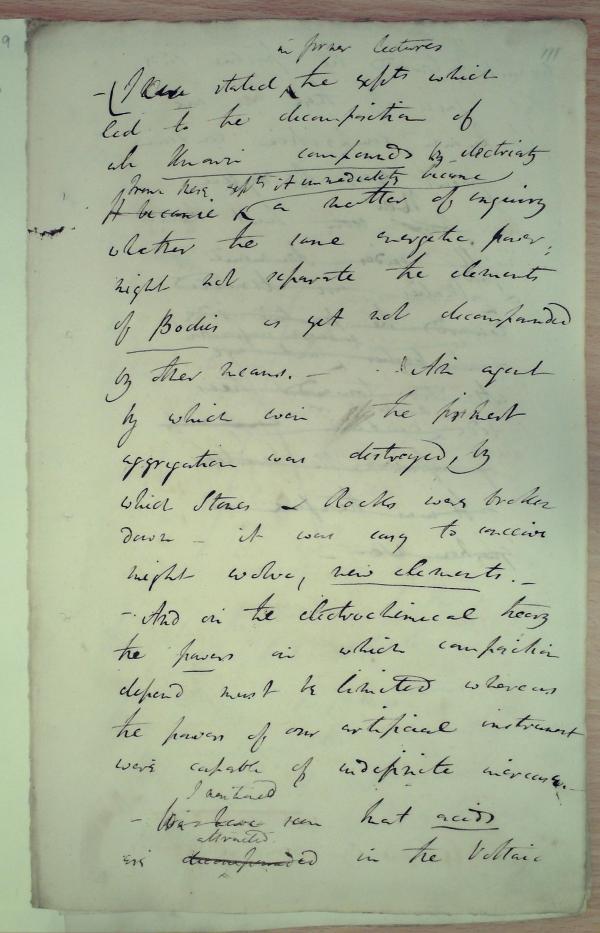 in former lectures
111
– (I have stated, the expts which
led to the decomposition of
all Known compounds by electricity
From these expts it immediately became
It became a matter of enquiry
whether the same energetic power,
might not separate the elements
of Bodies as yet not decompounded
by other means. – An agent
by which even the firmest
aggregation was destroyed, by
which Stones & Rocks were broken
down – it was easy to conceive
might evolve, new elements. –
– And on the electrochemical theory
the powers on which composition
depend must be limited whereas
the powers of our artificial instrument
were capable of indefinite increase. –
I mentioned
– We have seen that acids
attracted
are decompounded in the Voltaic